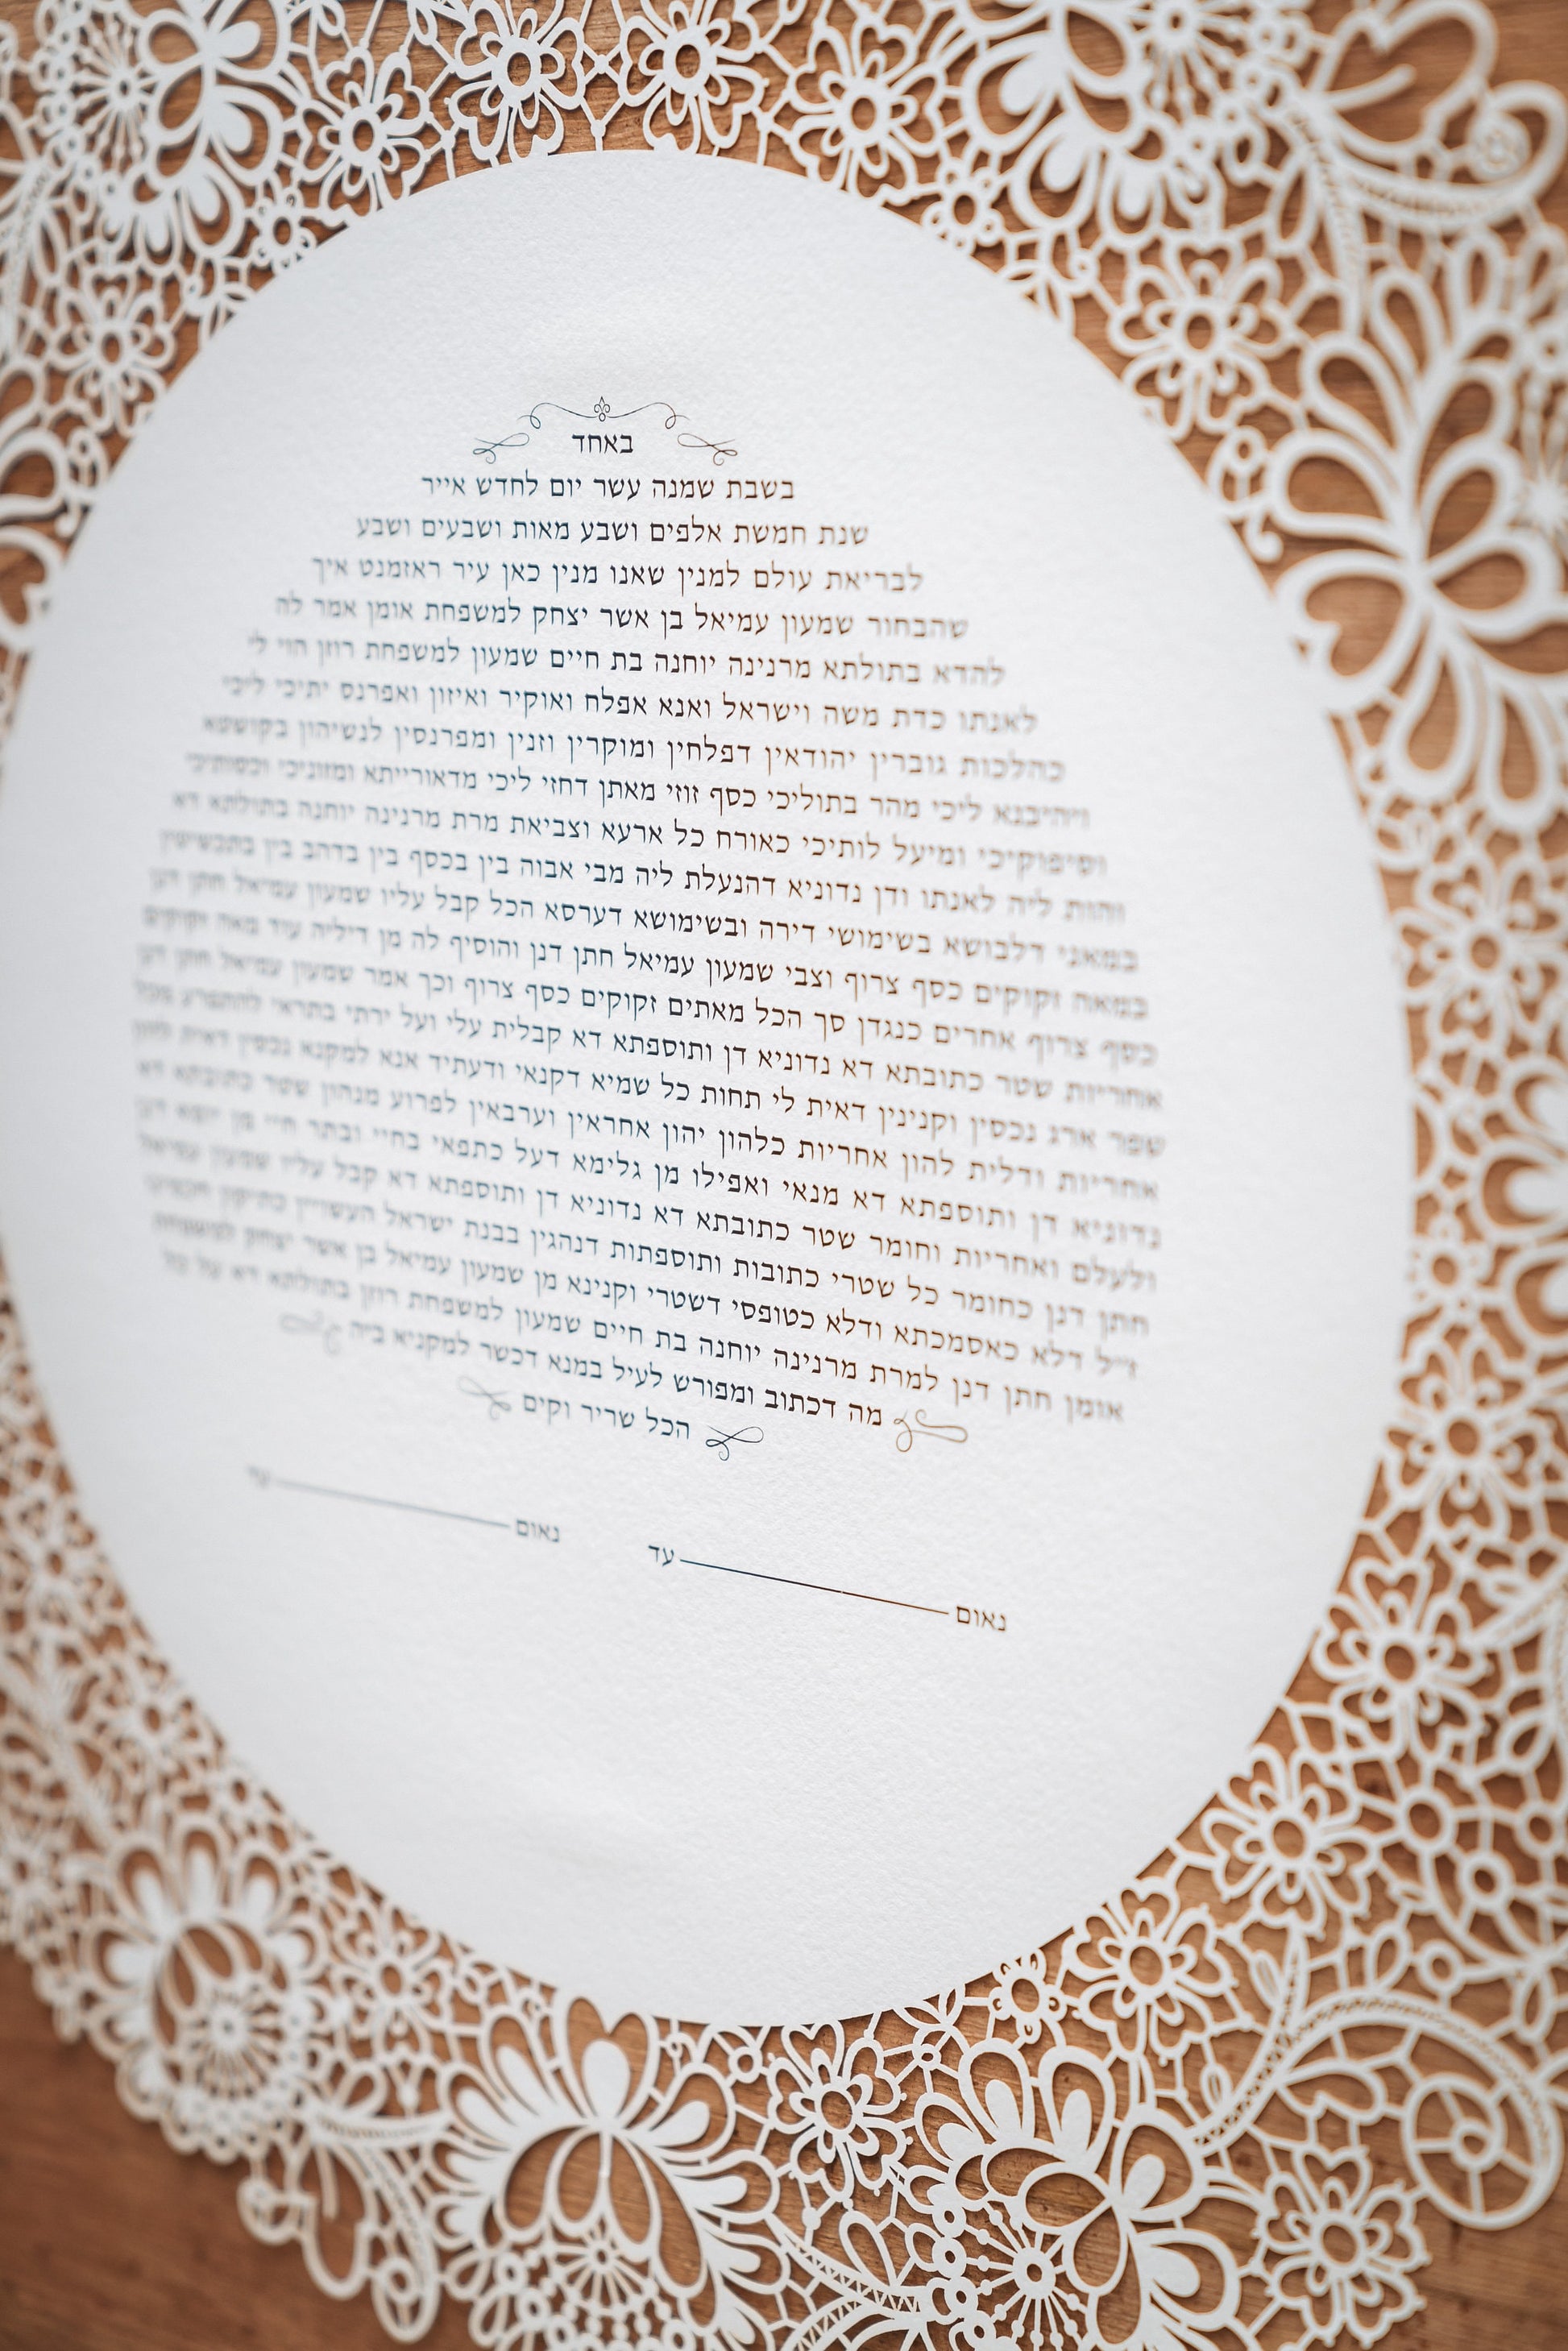 באחד
בשבת שמנה עשר יום לחדש אייר
שנת חמשת אלפים ושבע מאות ושבעים ושבע
לבריאת עולם למנין שאנו מנין כאן עיר ראזמנט איך
שהבחור שמעון עמיאל בן אשר יצחק למשפחת אומן אמר לה
להדא בתולתא מרנינה יוחנה בת חיים שמעון למשפחת רוזן הוי לי
לאנתו כדת משה וישראל ואנא אפלח ואוקיר ואיזון ואפרנס יתיכי ליכי
כהלכות גוברין יהודאין דפלחין ומוקרין וזנין ומפרנסין לנשיהון בקושטא
ויהיבנא ליכי מהר בתוליכי כסף זוזי מאתן דחזי ליכי מדאורייתא ומזוניכי וכסותיכי
וסיפוקיכי ומיעל לותיכי כאורח כל ארעא וצביאת מרת מרנינה יוחנה בתולתא דא
והות ליה לאנתו ודן נדוניא דהנעלת ליה מבי אבוה בין בכסף בין בדהב בין בתכשיטין
במאני דלבושא בשימושי דירה ובשימושא דערסא הכל קבל עליו שמעון עמיאל חתן דנן
במאה זקוקים כסף צרוף וצבי שמעון עמיאל חתן דנן והוסיף לה מן דיליה עוד מאה זקוקים
כסף צרוף אחרים כנגדן סך הכל מאתים זקוקים כסף צרוף וכך אמר שמעון עמיאל חתן דנן
אחריות שטר כתובתא דא נדוניא דן ותוספתא דא קבלית עלי ועל ירתי בתראי להתפרע מכל
שפר ארג נכסין וקנינין דאית לי תחות כל שמיא דקנאי ודעתיד אנא למקנא נכסין דאית להון
אחריות ודלית להון אחריות כלהון יהון אחראין וערבאין לפרוע מנהון שטר כתובתא דא
נדוניא דן ותוספתא דא מנאי ואפילו מן גלימא דעל כתפאי בחיי ובתר חיי מן יומא דנן
ולעלם ואחריות וחומר שטר כתובתא דא נדוניא דן ותוספתא דא קבל עליו שמעון עמיאל
חתן דנן כחומר כל שטרי כתובות ותוספתות דנהגין בבנת ישראל העשויין כתיקון חכמינו
ז״ל דלא כאסמכתא ודלא כטופסי דשטרי וקנינא מן שמעון עמיאל בן אשר יצחק למשפחת
אומן חתן דנן למרת מרנינה יוחנה בת חיים שמעון למשפחת רוזן בתולתא דא על כל
מה דכתוב ומפורש לעיל במנא דכשר למקניא ביה
הכל שריר וקים
נאום עד נאום עד